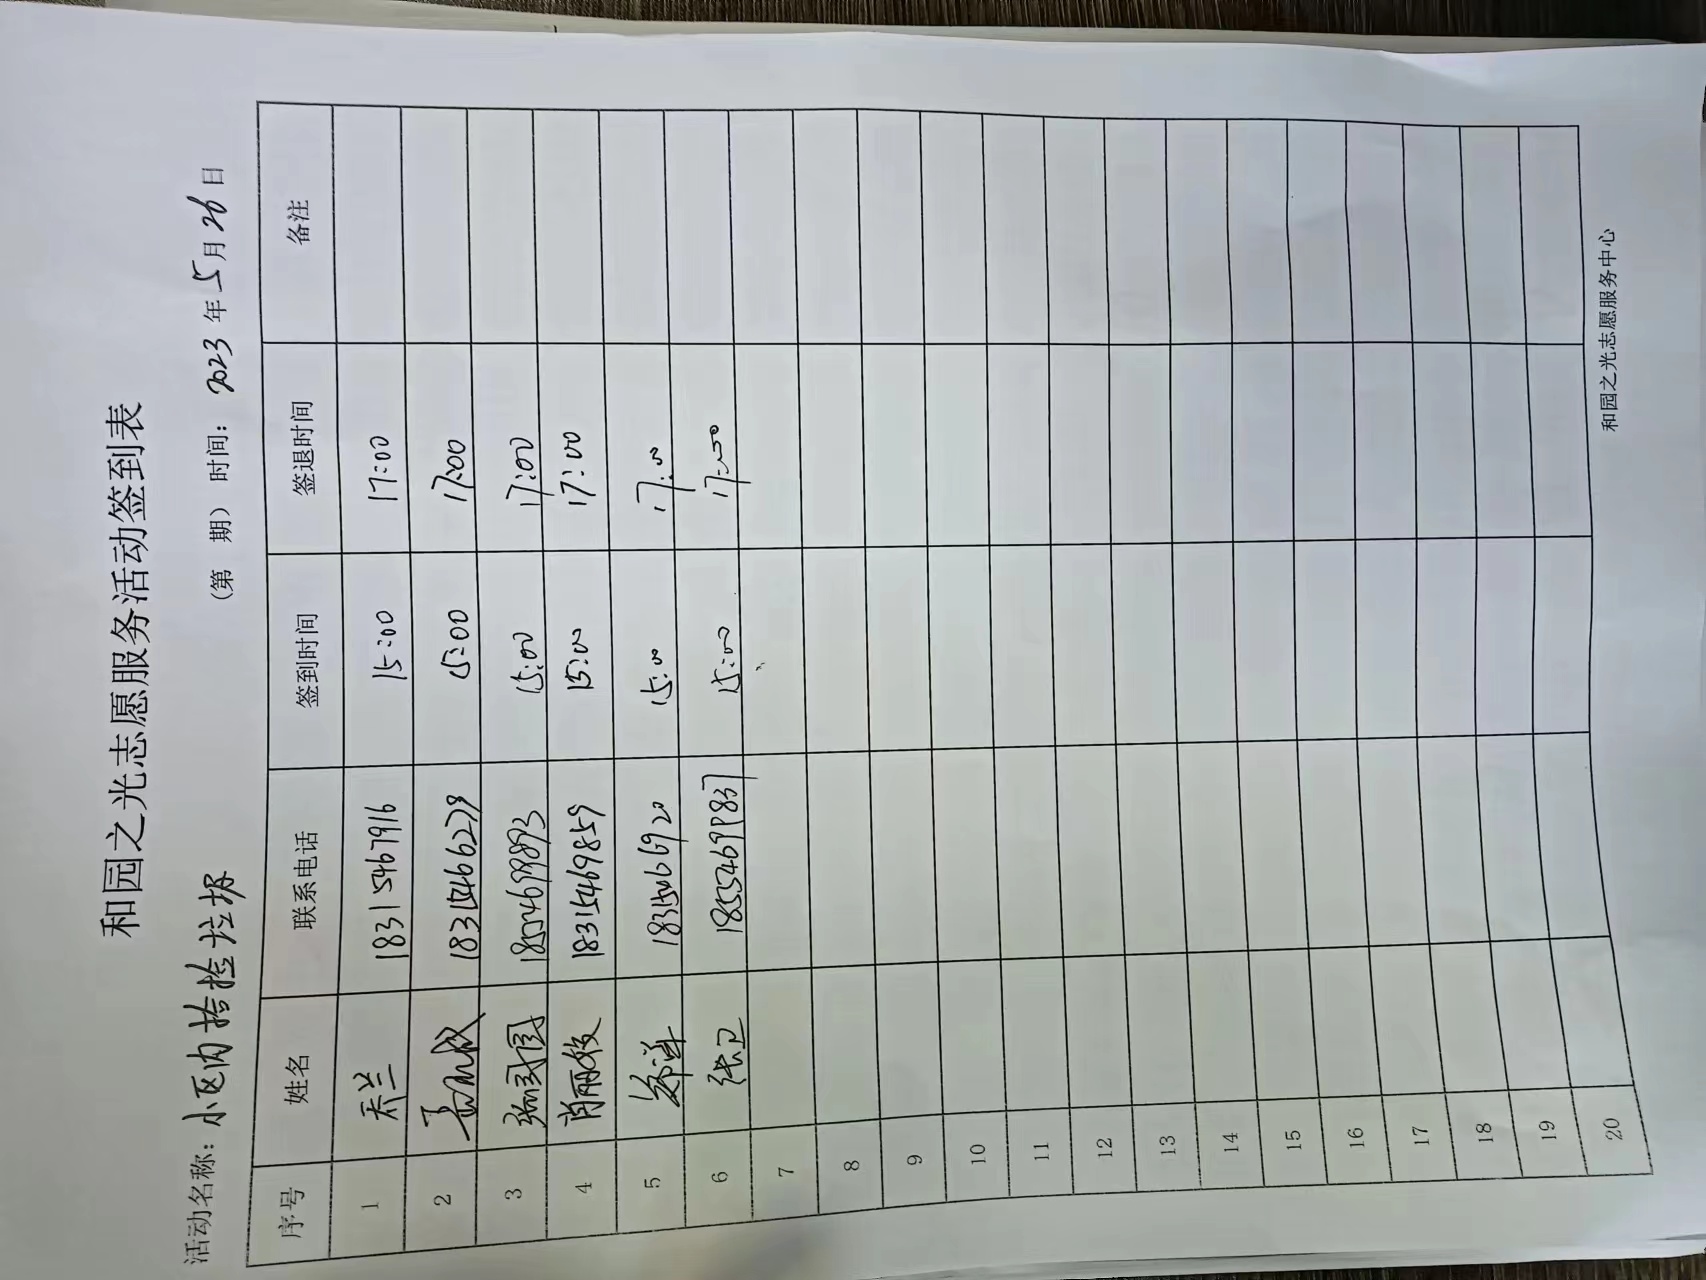 和园之光志愿服务活动签到表
活动名称：小区内捡捡垃圾 （第 期） 时间：2023年5月26日
序号 姓名 联系电话 签到时间 签退时间 备注
1 乔兰 18315467916 15:00 17:00
2 18315466279 15:00 17:00
3 18554699893 15:00 17:00
4 肖丽姣 18315469859 15:00 17:00
5 郑洋 15:00 17:00
6 张卫 18554699837 15:00 17:00
7
8
9
10
11
12
13
14
15
16
17
18
19
20
和园之光志愿服务中心